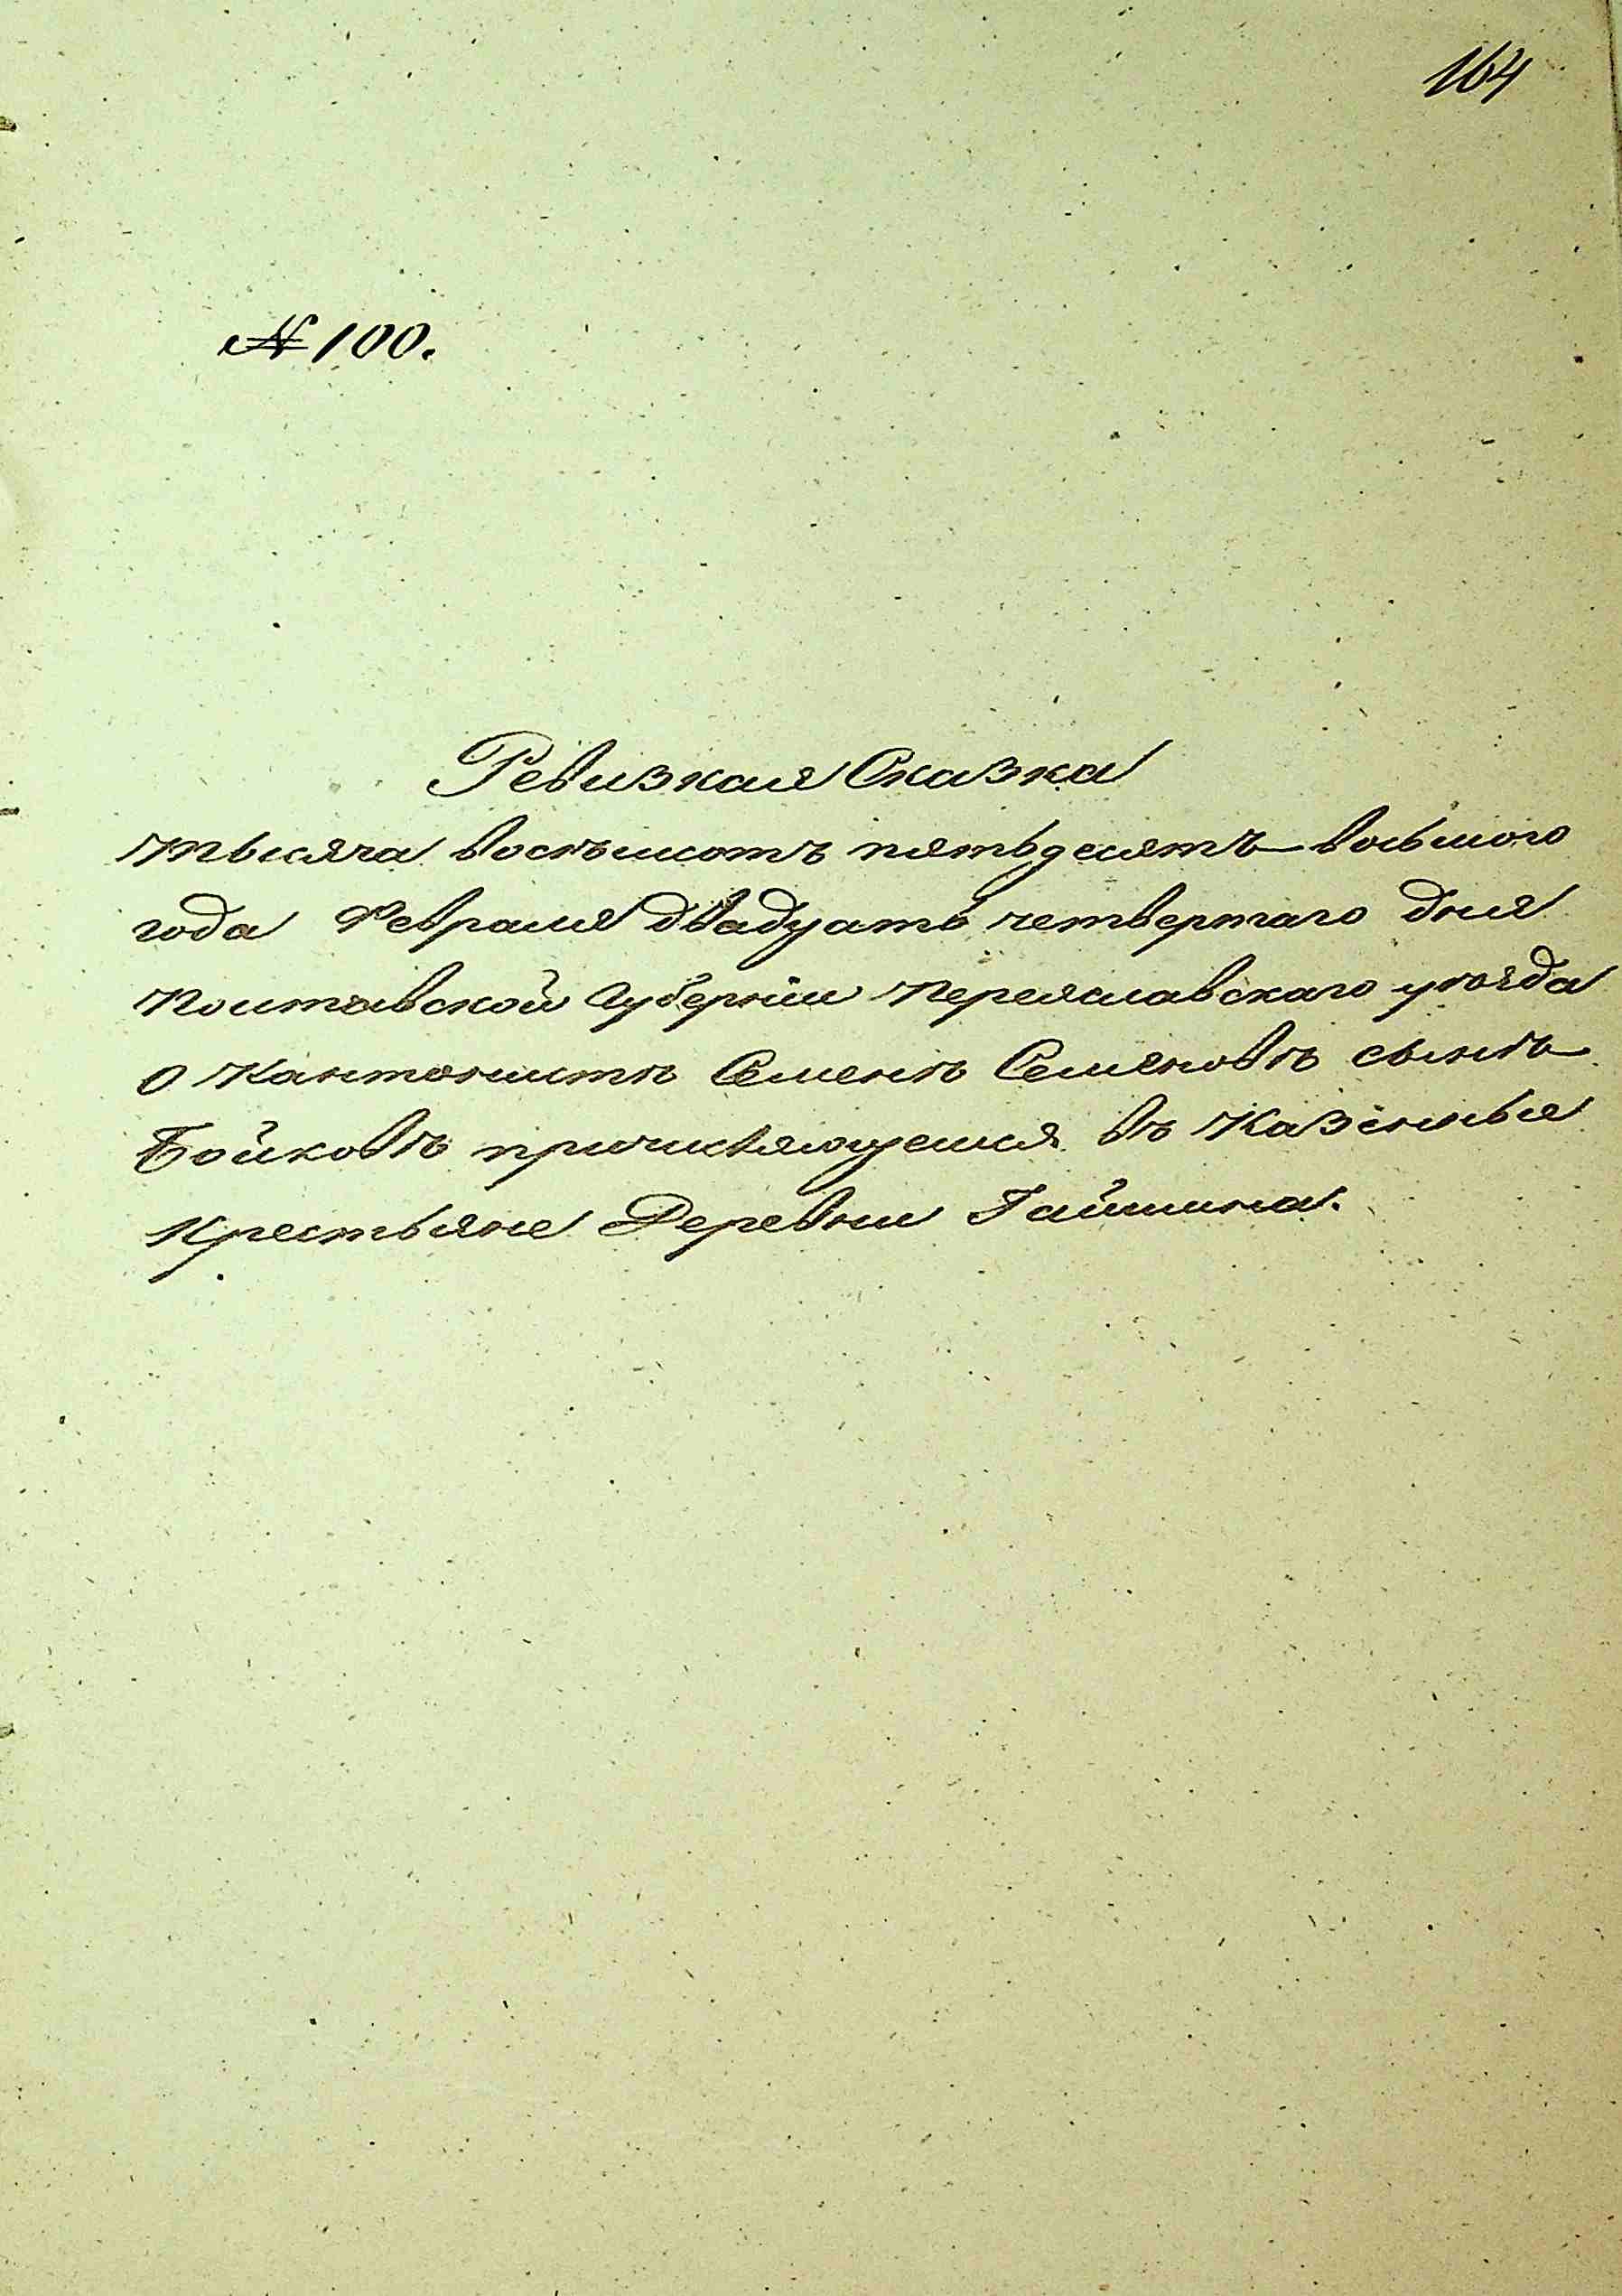 164
№ 100.
Ревизкая Сказка
тысяча восемьсотъ пятьдесятъ восьмого
года Февраля двадцать четвертаго дня
Полтавской Губерніи Переяславскаго уѣзда
о Кантонистѣ Семенѣ Семеновѣ сынѣ
Бойковѣ причисляющемся въ Казенные
Крестьяне Деревни Гайшина.